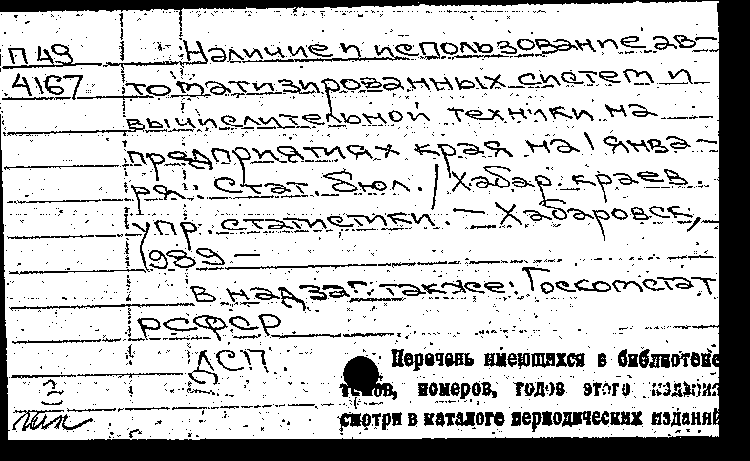 П 49 Наличие и использование ав-
4167 томатизированных систем и
вычислительной техники на
предприятиях края на 1 янва-
ря: Стат. бюл. / Хабар. краев.
упр. статистики. – Хабаровск,
1989 –
В надзаг. также: Госкомстат
РСФСР
ДСП.
Перечень имеющихся в библиотеке
томов, номеров, годов этого издания
смотри в каталоге периодических изданий
2